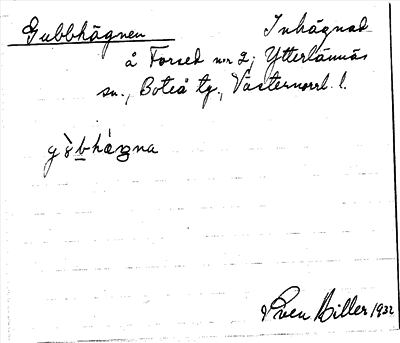 Gubbhägnen Inhägnad
å Forsed n:r 2, Ytterlännäs
sn., Boteå tg., Västernorrl. l.
Sven Biller 1932